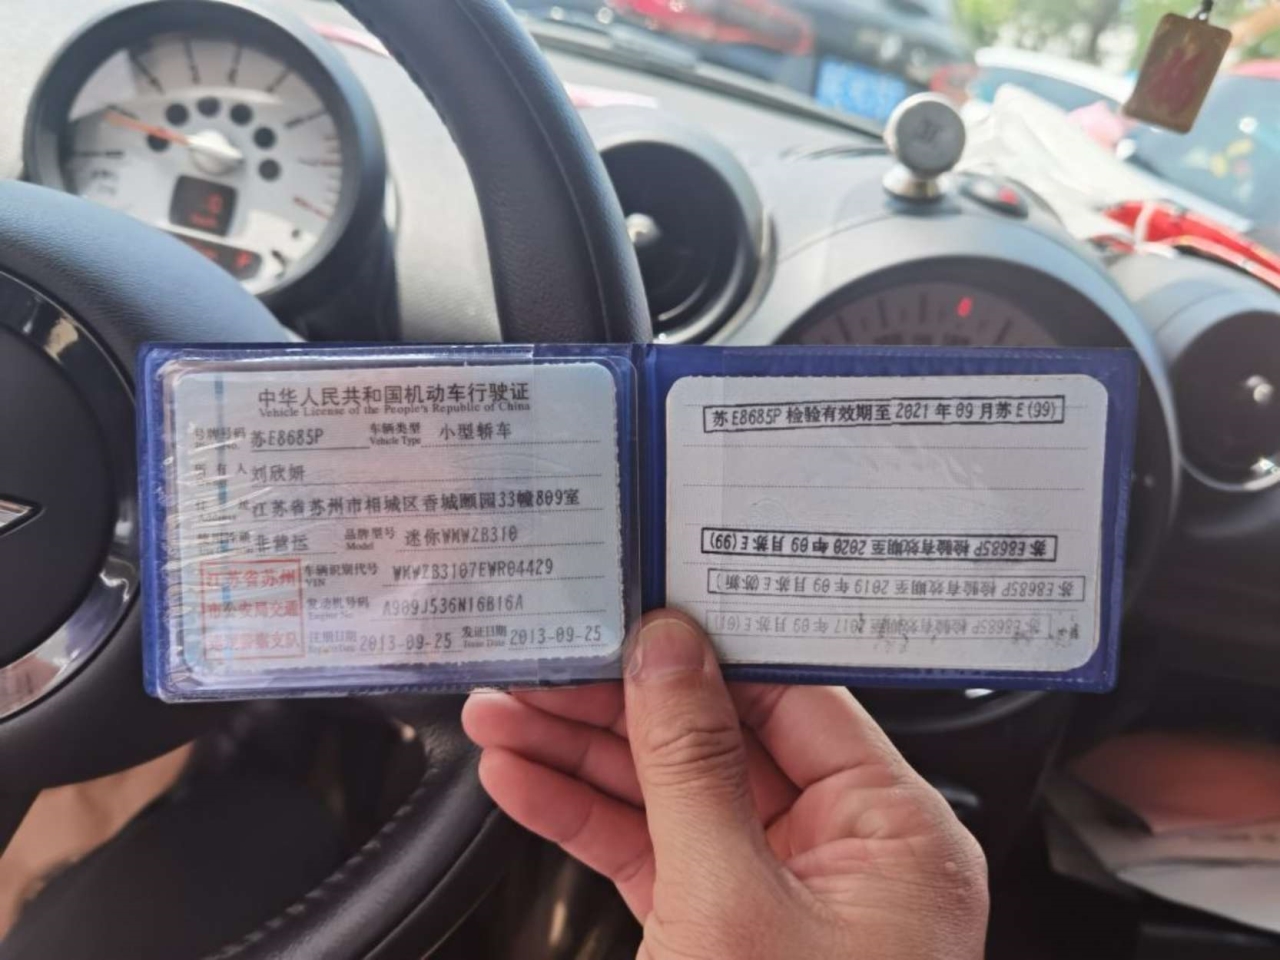 中华人民共和国机动车行驶证
Vehicle License of the People's Republic of China
号牌号码 苏E8685P 车辆类型 Vehicle Type 小型轿车
所有人 刘欣妍
住址 江苏省苏州市相城区香城颐园33幢809室
使用性质 非营运 品牌型号 Model 迷你WMWZB310
车辆识别代号 VIN WMWZB3107EWR04429
发动机号码 Engine No. A909J536N16B16A
注册日期 2013-09-25 发证日期 Issue Date 2013-09-25
江苏省苏州
市公安局交通
巡逻警察支队
苏E8685P 检验有效期至 2021年09月苏E(99)
苏E8685P 检验有效期至 2020年09月苏E(99)
苏E8685P 检验有效期至 2019年09月苏E(苏新)
苏E8685P 检验有效期至 2017年09月苏E